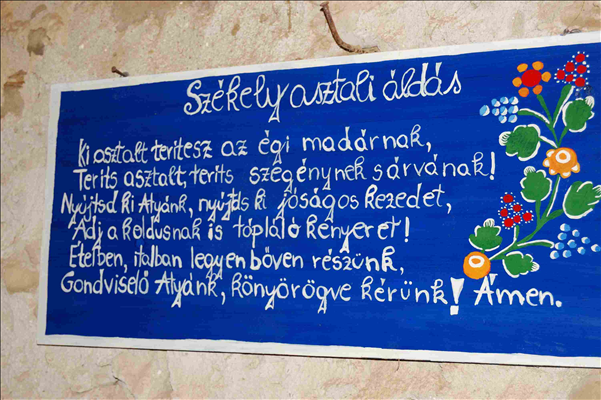 Székely asztali áldás
Ki asztalt teritesz az égi madárnak,
Terits asztalt, terits szegénynek sárvának!
Nyújtsd ki Atyánk, nyújtsd ki jóságos kezedet,
Adj a koldusnak is tápláló kenyeret!
Ételben, italban legyen bőven részünk,
Gondviselő Atyánk, könyörögve kérünk! Ámen.